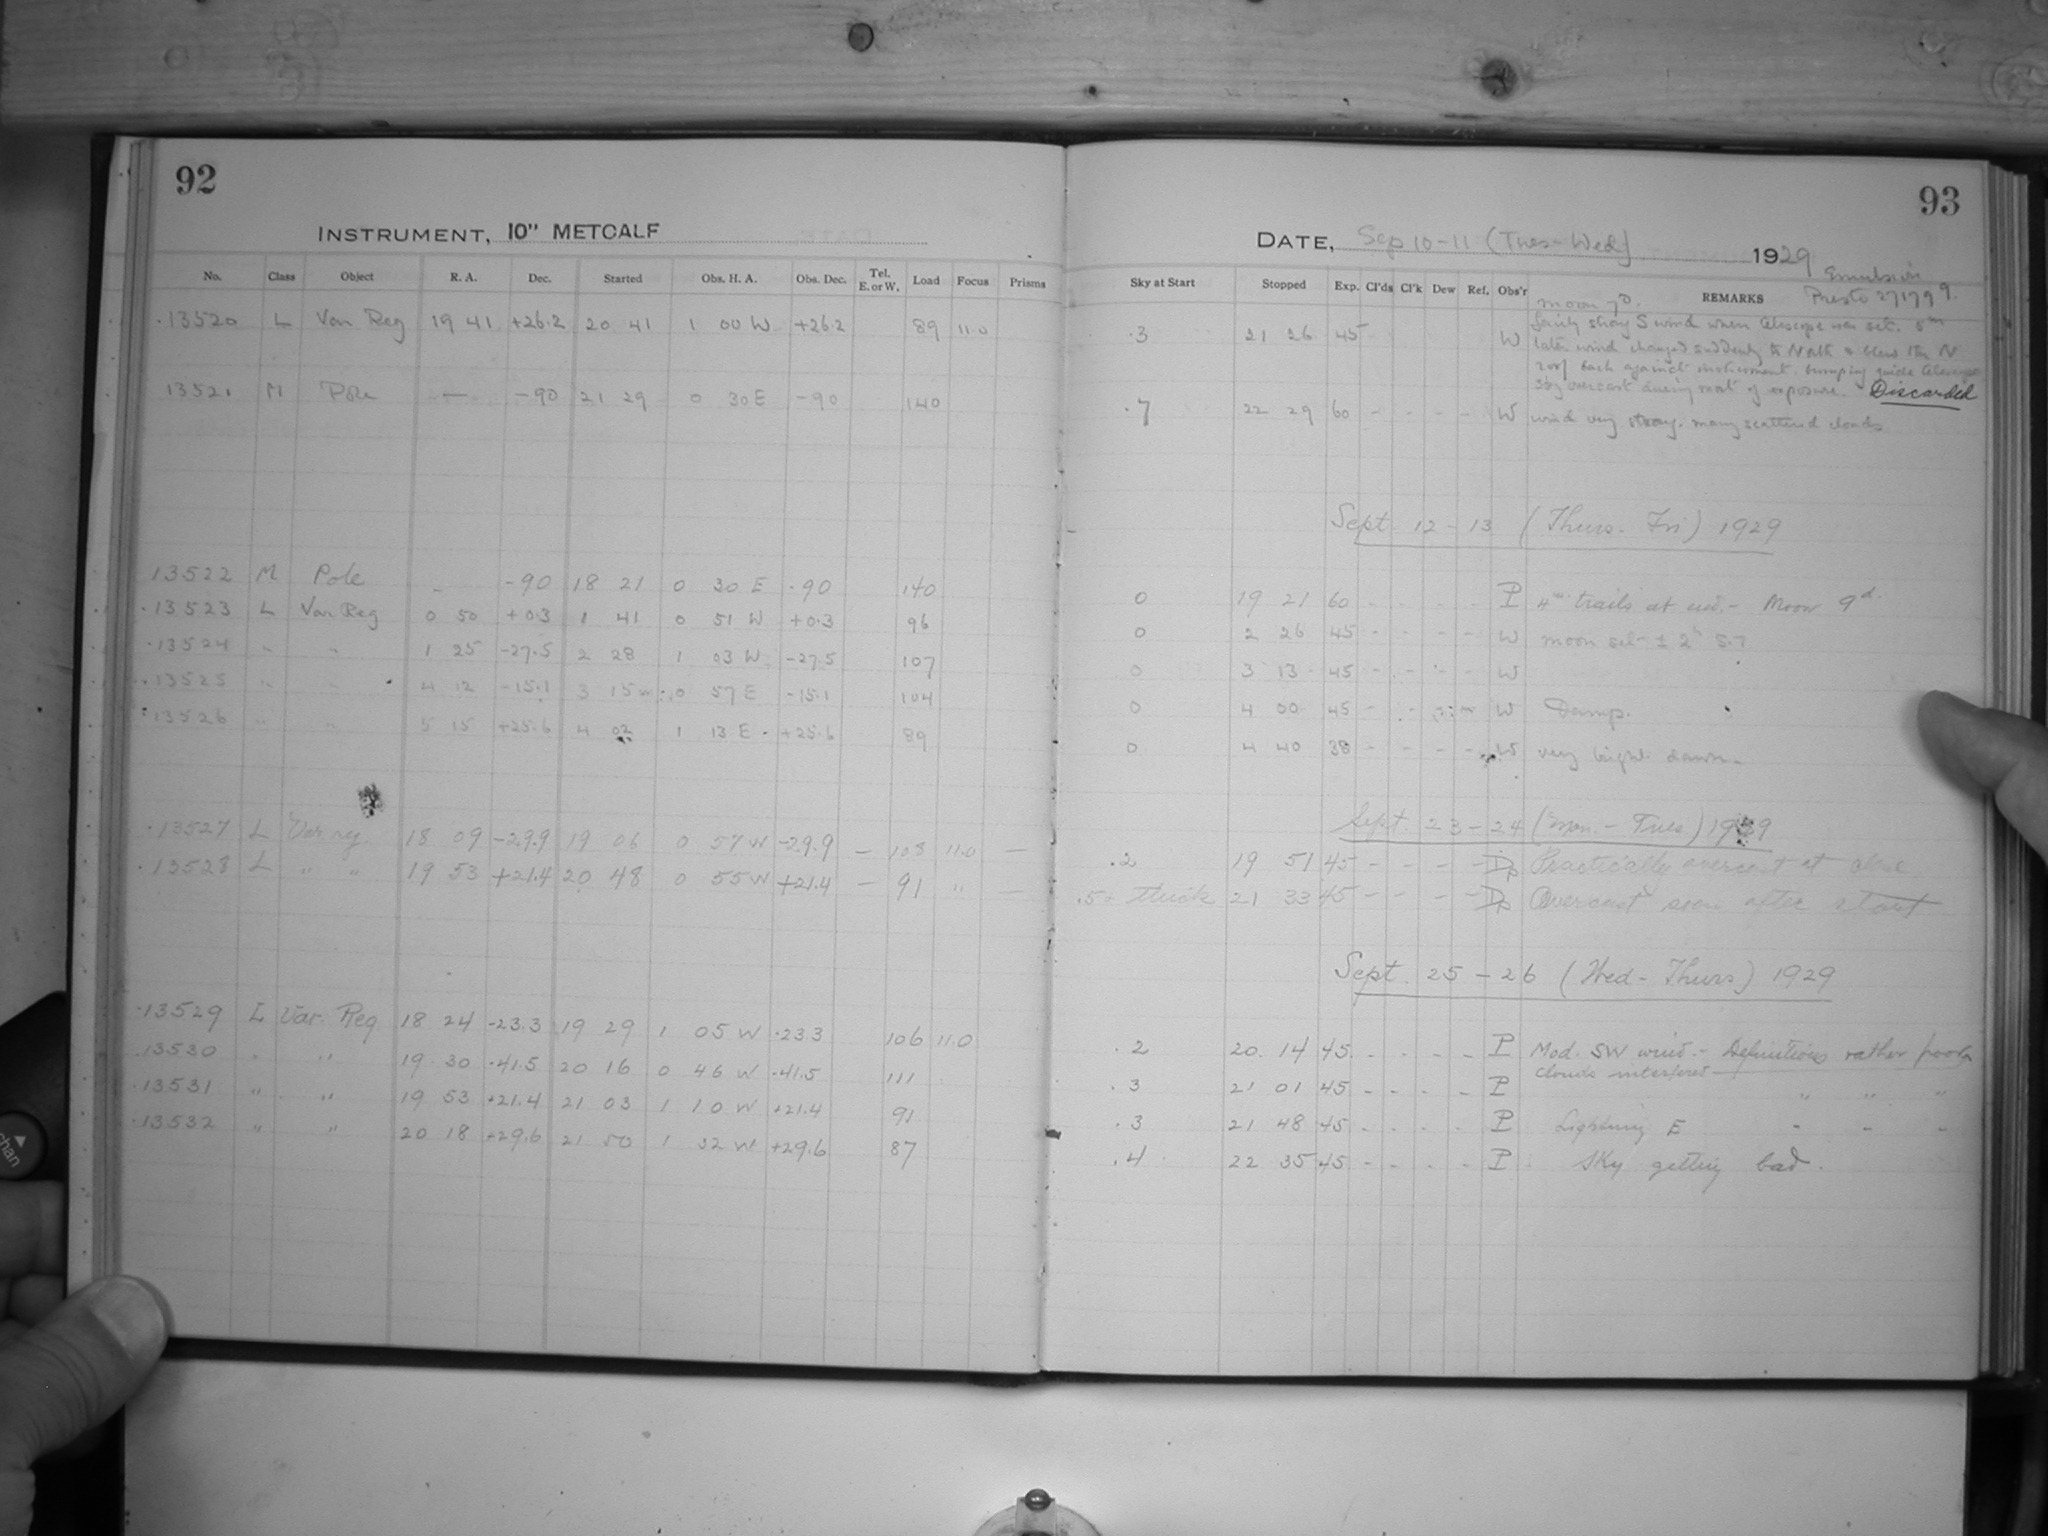 92
INSTRUMENT, 10" METCALF
No. Class Object R. A. Dec. Started Obs. H. A. Obs. Dec. Tel. E. or W. Load Focus Prisms
13520 L Var Reg 19 41 +26.2 20 41 1 00 W +26.2 89 11.0
13521 M Pole — -90 21 29 0 30 E -90 140
13522 M Pole - -90 18 21 0 30 E -90 140
13523 L Var Reg 0 50 +0.3 1 41 0 51 W +0.3 96
13524 " " 1 25 -27.5 2 28 1 03 W -27.5 107
13525 " " 4 12 -15.1 3 15 0 57 E -15.1 104
13526 " " 5 15 +25.6 4 02 1 13 E +25.6 89
13527 L Var reg 18 09 -29.9 19 06 0 57 W -29.9 — 108 11.0 —
13528 L " " 19 53 +21.4 20 48 0 55 W +21.4 — 91 " —
13529 L Var. Reg. 18 24 -23.3 19 29 1 05 W -23.3 106 11.0
13530 " " 19 30 -41.5 20 16 0 46 W -41.5 111
13531 " " 19 53 +21.4 21 03 1 10 W +21.4 91
13532 " " 20 18 +29.6 21 50 1 32 W +29.6 87
93
DATE, Sep 10-11 (Tues-Wed) 1929
Emulsion
Presto 271799.
Sky at Start Stopped Exp. Cl'ds Cl'k Dew Ref. Obs'r REMARKS
moon 7d.
.3 21 26 45 W fairly strong S wind when telescope was set. 5m
later wind changed suddenly to North & blew the N
roof back against instrument bumping guide telescope
sky overcast during most of exposure. Discarded
.7 22 29 60 - - - - W wind very strong. many scattered clouds
Sept 12-13 (Thurs-Fri) 1929
0 19 21 60 - - - - P 4m trails at end.- Moon 9d.
0 2 26 45 - - - - W moon set
0 3 13 45 - - - - W
0 4 00 45 - - W Damp.
0 4 40 38 - - - - W very bright dawn.
Sept. 23-24 (Mon.-Tues) 1929
.2 19 51 45 - - - - Dp Practically overcast at close
.5+ thick 21 33 45 - - - - Dp Overcast soon after start
Sept. 25-26 (Wed-Thurs) 1929
.2 20 14 45 - - - - P Mod. SW wind.- Definitions rather poor
clouds interferes
.3 21 01 45 - - - - P " " "
.3 21 48 45 - - - - P Lightning E " " "
.4 22 35 45 - - - - P Sky getting bad.